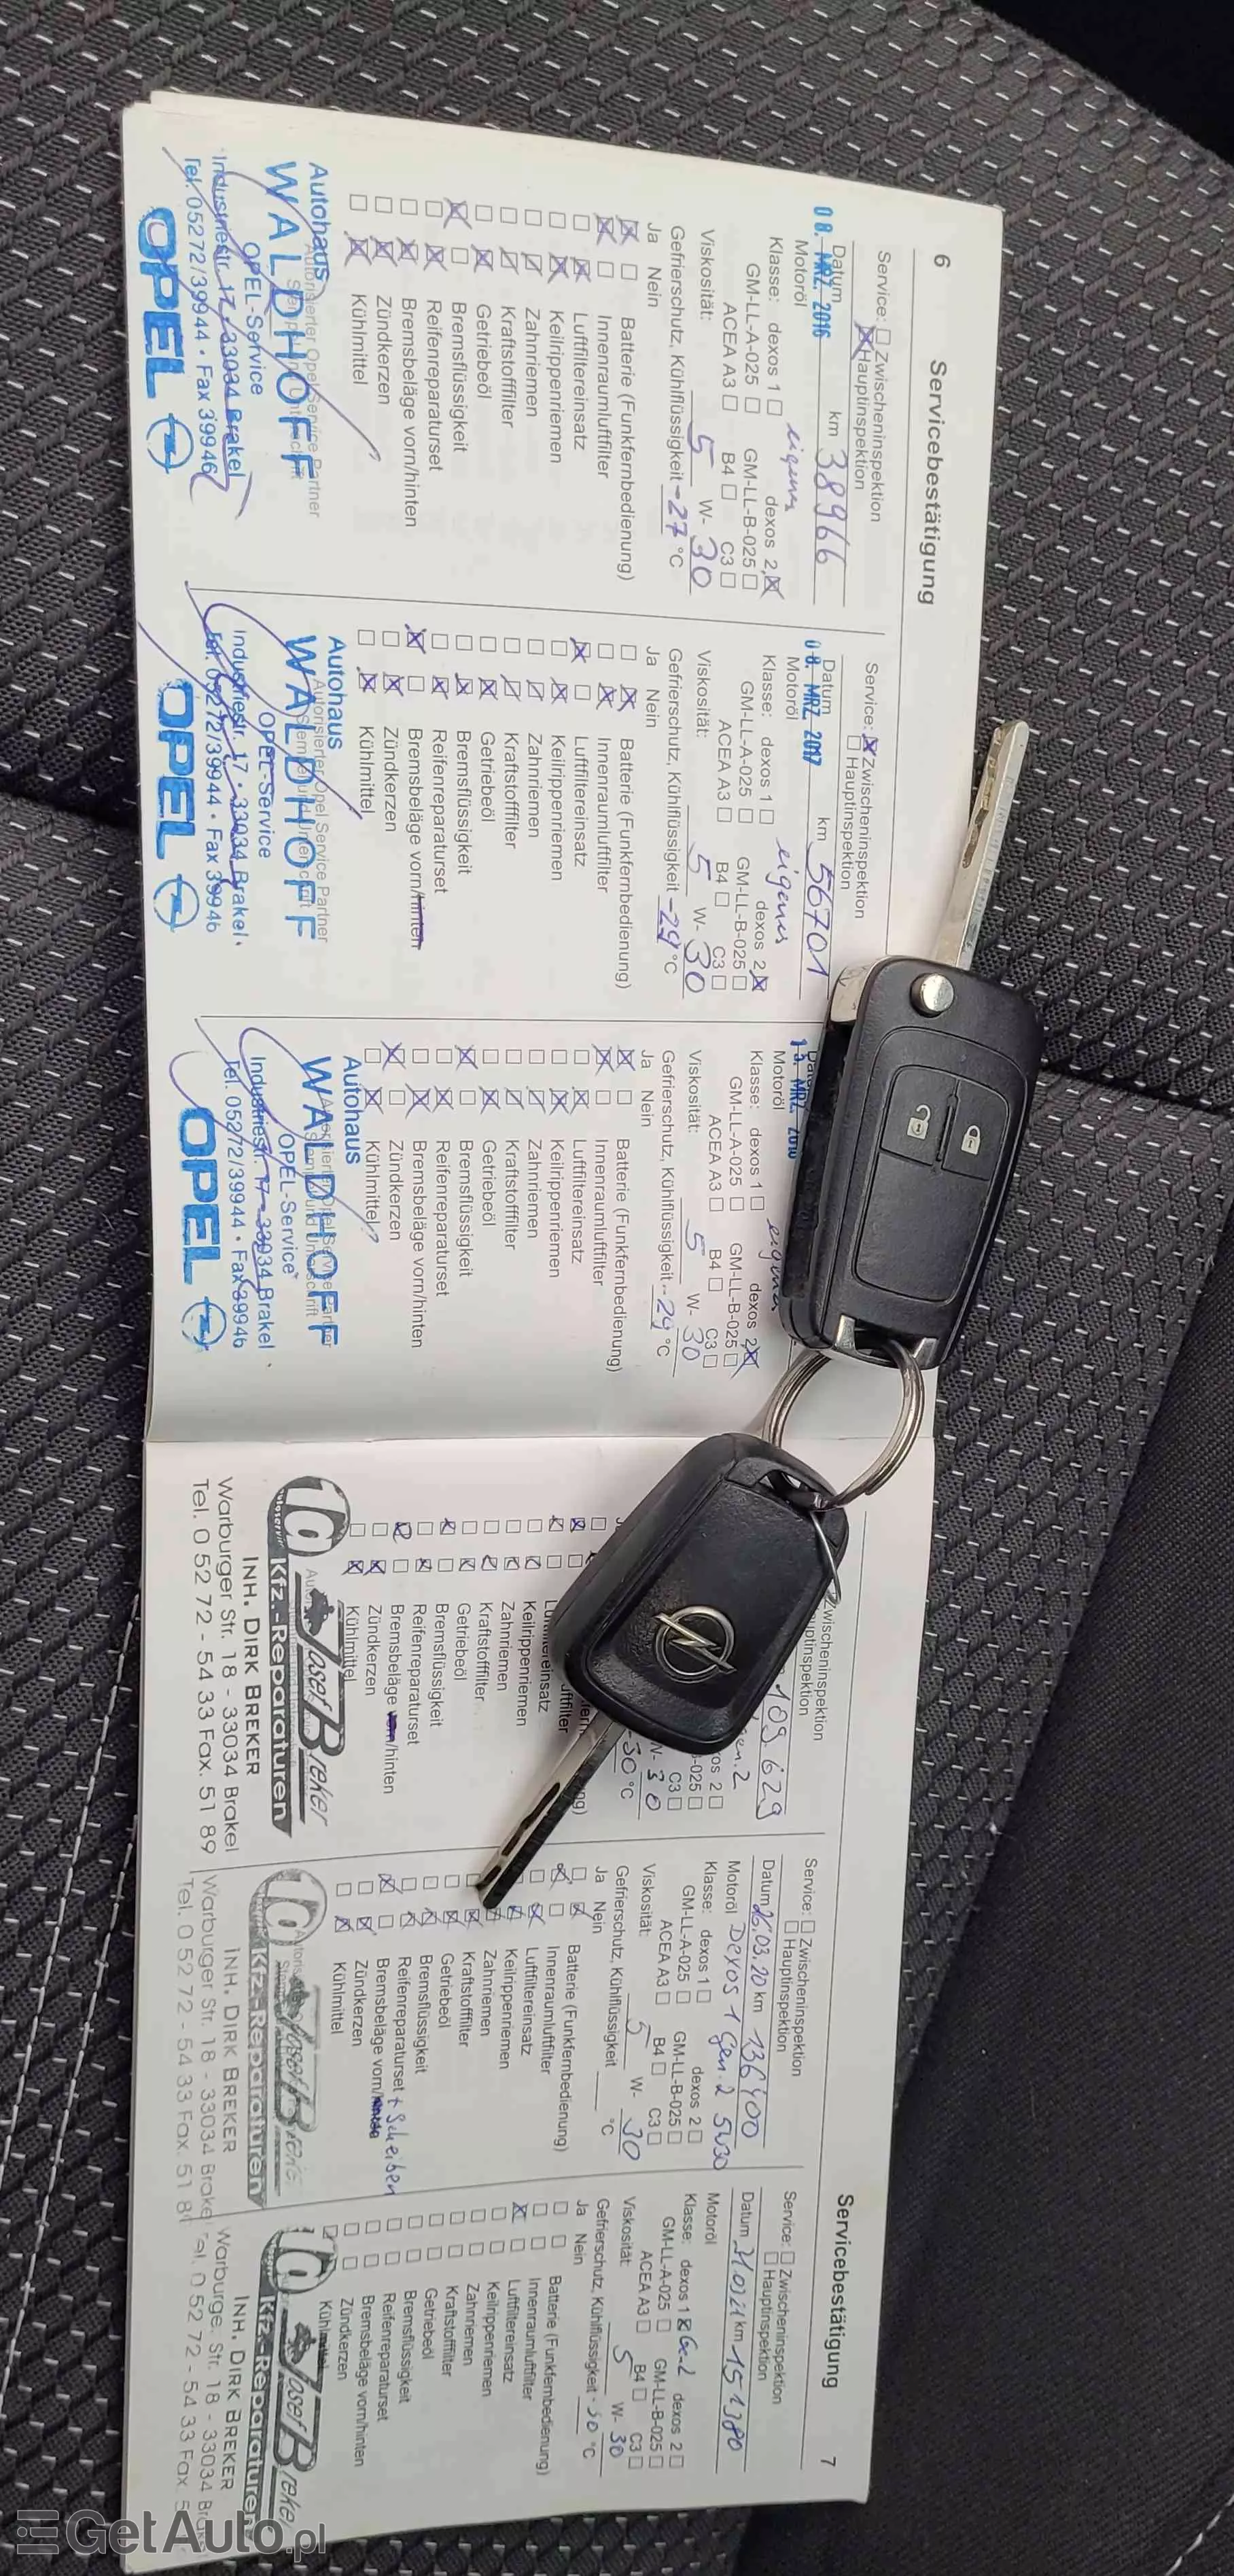 6
Servicebestätigung
Service: Zwischeninspektion
Hauptinspektion
08. MRZ. 2016
Datum
km 38966
Motoröl
eigenes
Klasse: dexos 1 dexos 2
GM-LL-A-025 GM-LL-B-025
ACEA A3 B4 C3
Viskosität: 5 W- 30
Gefrierschutz, Kühlflüssigkeit -27 °C
Ja Nein
Batterie (Funkfernbedienung)
Innenraumluftfilter
Luftfiltereinsatz
Keilrippenriemen
Zahnriemen
Kraftstofffilter
Getriebeöl
Bremsflüssigkeit
Reifenreparaturset
Bremsbeläge vorn/hinten
Zündkerzen
Kühlmittel
Autohaus
WALDHOFF
OPEL-Service
Industriestr. 17 · 33034 Brakel
Tel. 05272/39944 · Fax 39946
OPEL
Service: Zwischeninspektion
Hauptinspektion
08. MRZ 2017
Datum
km 56701
Motoröl
eigenes
Klasse: dexos 1 dexos 2
GM-LL-A-025 GM-LL-B-025
ACEA A3 B4 C3
Viskosität: 5 W- 30
Gefrierschutz, Kühlflüssigkeit -29 °C
Ja Nein
Batterie (Funkfernbedienung)
Innenraumluftfilter
Luftfiltereinsatz
Keilrippenriemen
Zahnriemen
Kraftstofffilter
Getriebeöl
Bremsflüssigkeit
Reifenreparaturset
Bremsbeläge vorn/hinten
Zündkerzen
Kühlmittel
Autohaus
WALDHOFF
OPEL-Service
Industriestr. 17 · 33034 Brakel
Tel. 05272/39944 · Fax 39946
OPEL
MRZ
Motoröl
Klasse: dexos 1 dexos 2
GM-LL-A-025 GM-LL-B-025
ACEA A3 B4 C3
Viskosität: 5 W- 30
Gefrierschutz, Kühlflüssigkeit -29 °C
Ja Nein
Batterie (Funkfernbedienung)
Innenraumluftfilter
Luftfiltereinsatz
Keilrippenriemen
Zahnriemen
Kraftstofffilter
Getriebeöl
Bremsflüssigkeit
Reifenreparaturset
Bremsbeläge vorn/hinten
Zündkerzen
Kühlmittel
Autohaus
WALDHOFF
OPEL-Service
Industriestr. 17 - 33034 Brakel
Tel. 05272/39944 · Fax 39946
OPEL
Servicebestätigung
7
Zwischeninspektion
109.629
C3
30
°C
Keilrippenriemen
Zahnriemen
Kraftstofffilter
Getriebeöl
Bremsflüssigkeit
Reifenreparaturset
Bremsbeläge vorn/hinten
Zündkerzen
Kühlmittel
Josef Breker
Kfz.-Reparaturen
INH. DIRK BREKER
Warburger Str. 18 - 33034 Brakel
Tel. 0 52 72 - 54 33 Fax. 51 89
Service: Zwischeninspektion
Hauptinspektion
Datum 26.03.20 km 136400
Motoröl Dexos 1 Gen.2 5W30
Klasse: dexos 1 dexos 2
GM-LL-A-025 GM-LL-B-025
ACEA A3 B4 C3
Viskosität: 5 W- 30
Gefrierschutz, Kühlflüssigkeit °C
Ja Nein
Batterie (Funkfernbedienung)
Innenraumluftfilter
Luftfiltereinsatz
Keilrippenriemen
Zahnriemen
Kraftstofffilter
Getriebeöl
Bremsflüssigkeit
Reifenreparaturset
Bremsbeläge vorn/ + Scheiben
Zündkerzen
Kühlmittel
Josef Breker
Kfz.-Reparaturen
INH. DIRK BREKER
Warburger Str. 18 - 33034 Brake
Tel. 0 52 72 - 54 33 Fax. 51 8
Service: Zwischeninspektion
Hauptinspektion
Datum km 151380
Motoröl
Klasse: dexos 1 dexos 2
GM-LL-A-025 GM-LL-B-025
ACEA A3 B4 C3
Viskosität: 5 W- 30
Gefrierschutz, Kühlflüssigkeit -30 °C
Ja Nein
Batterie (Funkfernbedienung)
Innenraumluftfilter
Luftfiltereinsatz
Keilrippenriemen
Zahnriemen
Kraftstofffilter
Getriebeöl
Bremsflüssigkeit
Reifenreparaturset
Bremsbeläge vorn/hinten
Zündkerzen
Josef Breke
Kfz.-Reparaturen
INH. DIRK BREKER
Warburge Str. 18 - 33034 Br
el. 0 52 72 - 54 33 Fax. 5
GetAuto.pl